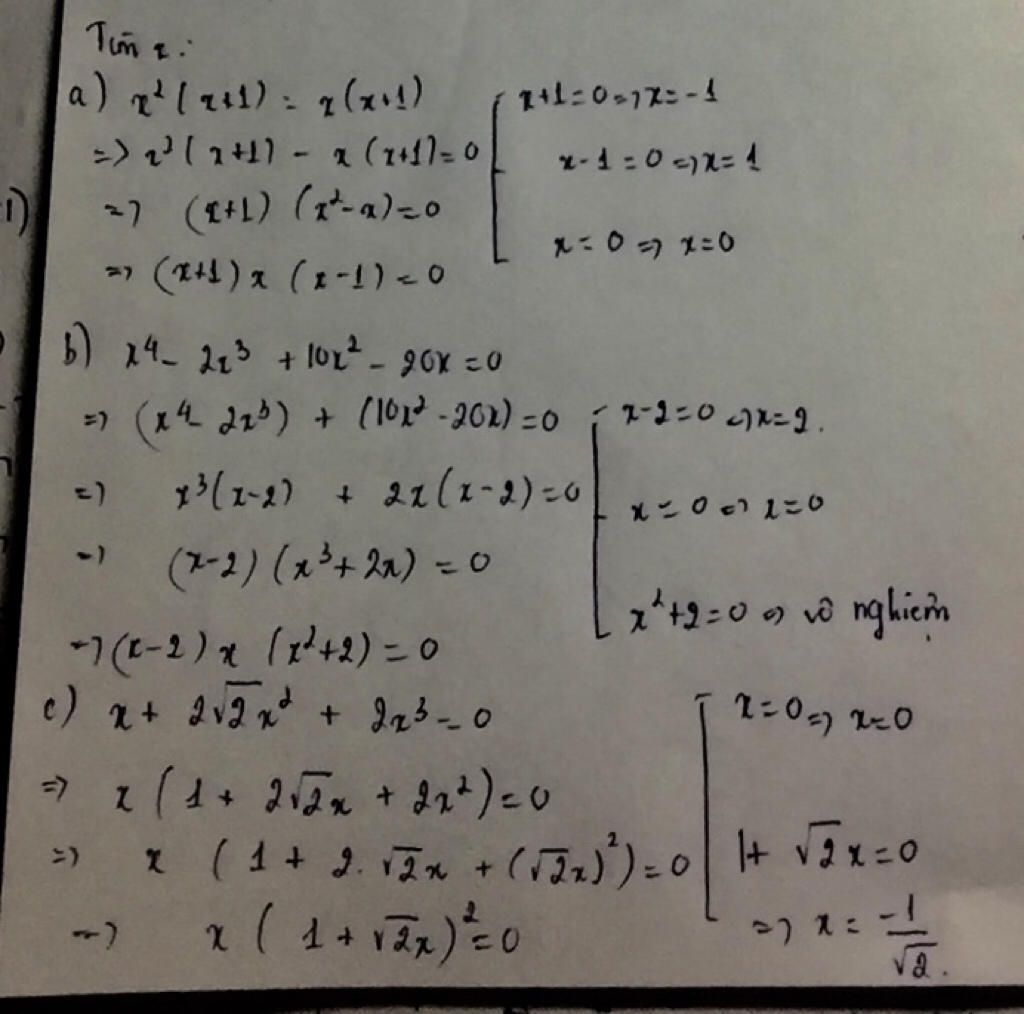 Tìm x:
a) x²(x+1) = x(x+1)
=> x²(x+1) - x(x+1) = 0
=> (x+1)(x²-x) = 0
=> (x+1)x(x-1) = 0
[ x+1=0 => x=-1
x-1=0 => x=1
x=0 => x=0
b) x⁴ - 2x³ + 10x² - 20x = 0
=> (x⁴ - 2x³) + (10x² - 20x) = 0
=> x³(x-2) + 2x(x-2) = 0
=> (x-2)(x³+2x) = 0
=> (x-2)x(x²+2) = 0
[ x-2=0 => x=2.
x=0 => x=0
x²+2=0 => vô nghiệm
c) x + 2√2x² + 2x³ = 0
=> x(1 + 2√2x + 2x²) = 0
=> x(1 + 2.√2x + (√2x)²) = 0
=> x(1 + √2x)² = 0
[ x=0 => x=0
1+ √2x=0
=> x = -1/√2.
1)